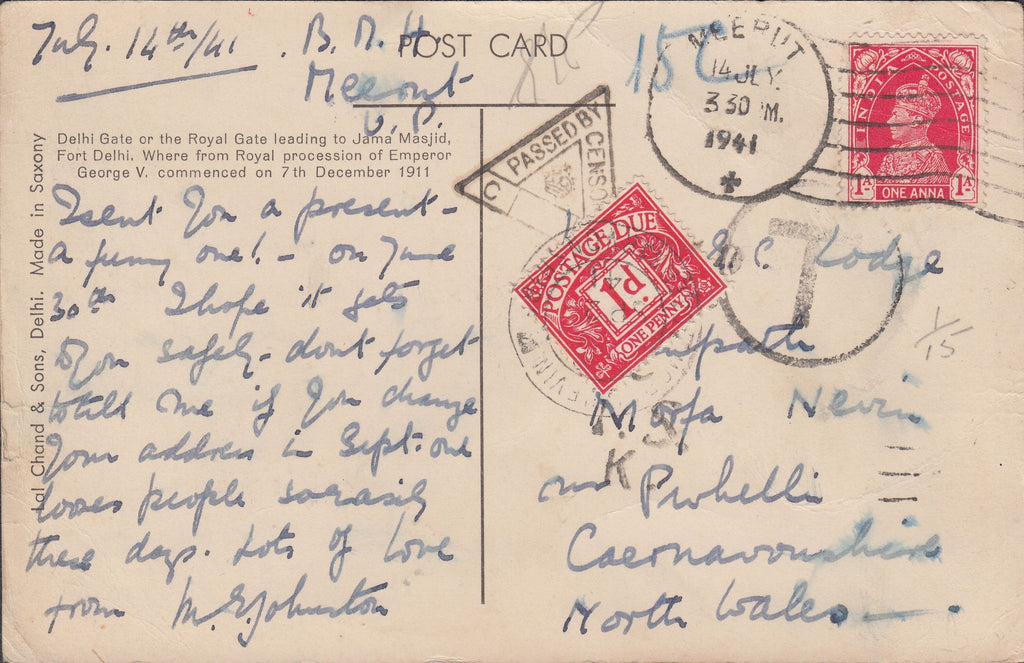 July. 14th/41 . B. M. H.
Meerut
U. P.
POST CARD
15c
MEERUT
14 JLY.
3 30 PM.
1941
INDIA POSTAGE
1A 1A
ONE ANNA
Delhi Gate or the Royal Gate leading to Jama Masjid,
Fort Delhi. Where from Royal procession of Emperor
George V. commenced on 7th December 1911
Lal Chand & Sons, Delhi. Made in Saxony
PASSED BY
CENSOR
POSTAGE DUE
1d.
ONE PENNY
NEVIN
T
1/15
I sent you a present -
a funny one! - on June
30th I hope it gets
to you safely - dont forget
to tell me if you change
your address in Sept. one
looses people so easily
these days. Lots of love
from M. E. Johnston
Lodge
Morfa Nevin
nr Pwhelli
Caernavonshire
North Wales